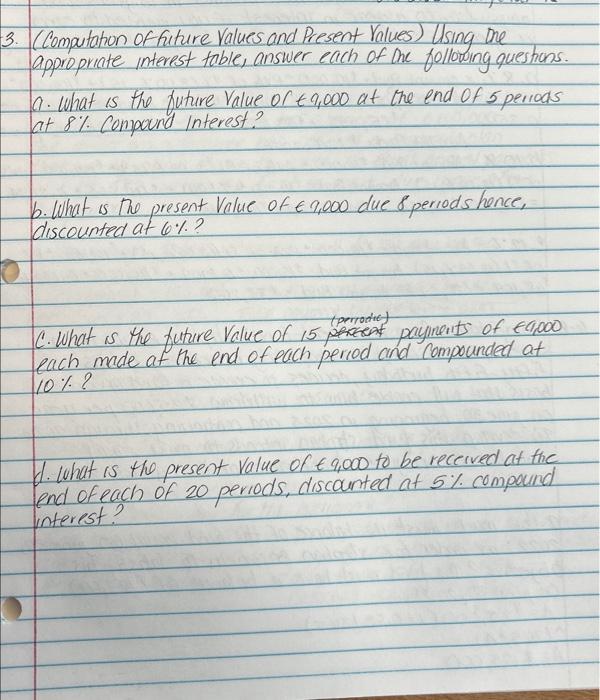 3. (Computation of Future Values and Present Values) Using the
appropriate interest table, answer each of the following questions.
a. What is the future Value of €9,000 at the end of 5 periods
at 8% Compound Interest?
b. What is the present Value of €9,000 due 8 periods hence,
discounted at 6%?
(periodic)
C. What is the future Value of 15 percent payments of €9,000
each made at the end of each period and Compounded at
10%?
d. What is the present Value of €9,000 to be received at the
end of each of 20 periods, discounted at 5% compound
interest?